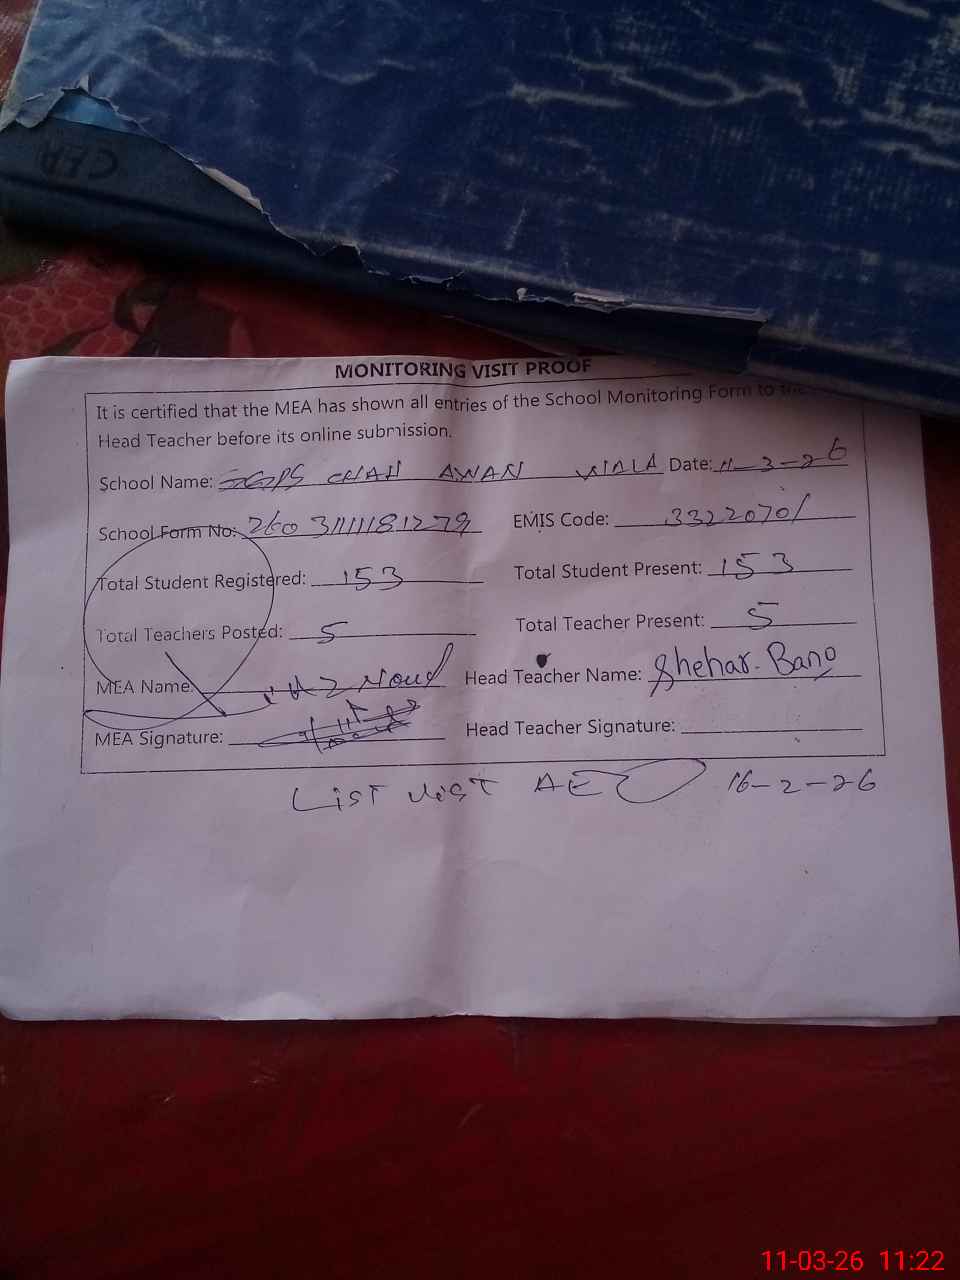 CER
MONITORING VISIT PROOF
It is certified that the MEA has shown all entries of the School Monitoring Form to the
Head Teacher before its online submission.
School Name: GGPS CHAH AWAN WALA Date: 11-3-26
School Form No: 260311111181279 EMIS Code: 33220701
Total Student Registered: 153 Total Student Present: 153
Total Teachers Posted: 5 Total Teacher Present: 5
MEA Name: Head Teacher Name: Shehar Bano
MEA Signature: Head Teacher Signature:
LIST VisiT AEO 16-2-26
11-03-26 11:22